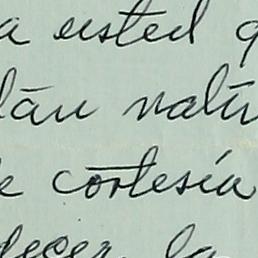 a usted q
lán natu
e cortesía
decer la